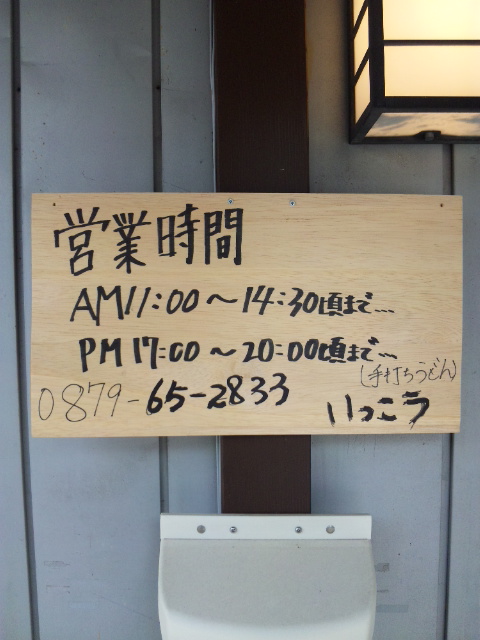 営業時間
AM11:00〜14:30頃まで...
PM17:00〜20:00頃まで...
(手打ちうどん)
0879-65-2833 いっこう